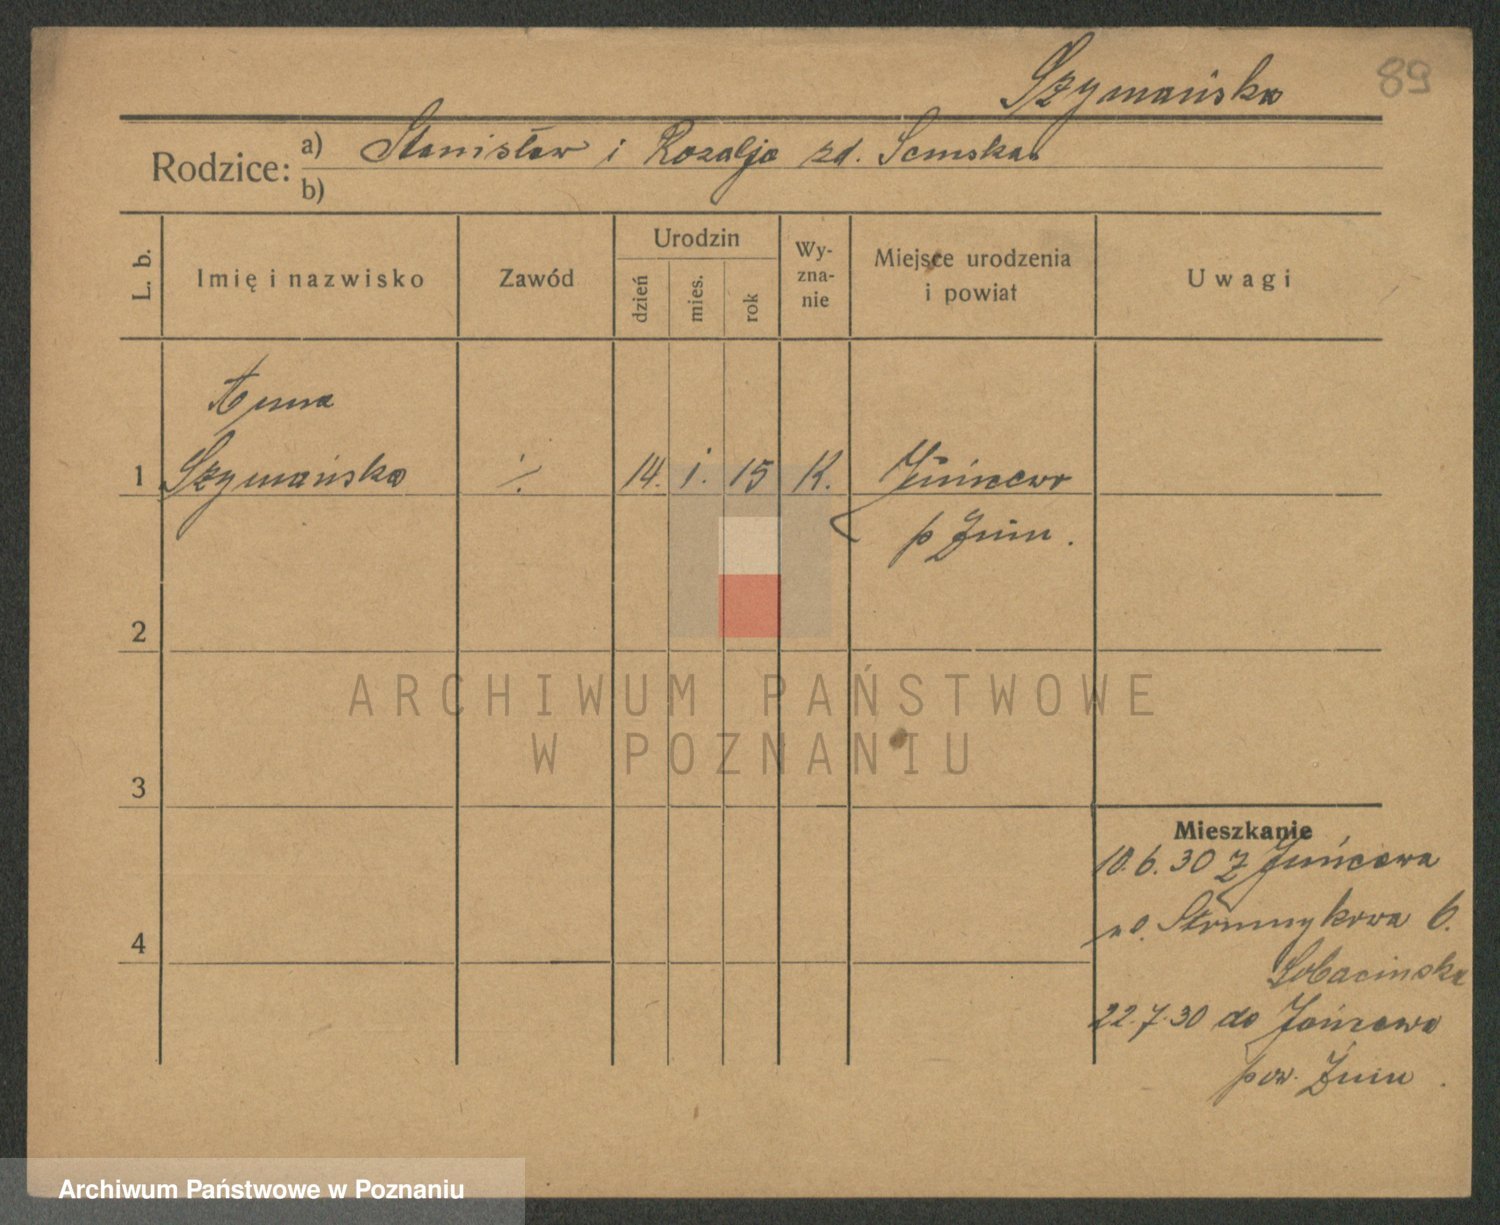 Szymańska 89
Rodzice: a) Stanisław i Rozalja zd. Semska
b)
L. b. Imię i nazwisko Zawód Urodzin dzień mies. rok Wyznanie Miejsce urodzenia i powiat Uwagi
Anna
1 Szymańska ·/. 14. 1. 15 K.
p Żnin.
2
ARCHIWUM PAŃSTWOWE
W POZNANIU
3
Mieszkanie
10.6.30 z
ul. Strumykowa 6.
4
22.7.30 do
pow. Żnin.
Archiwum Państwowe w Poznaniu